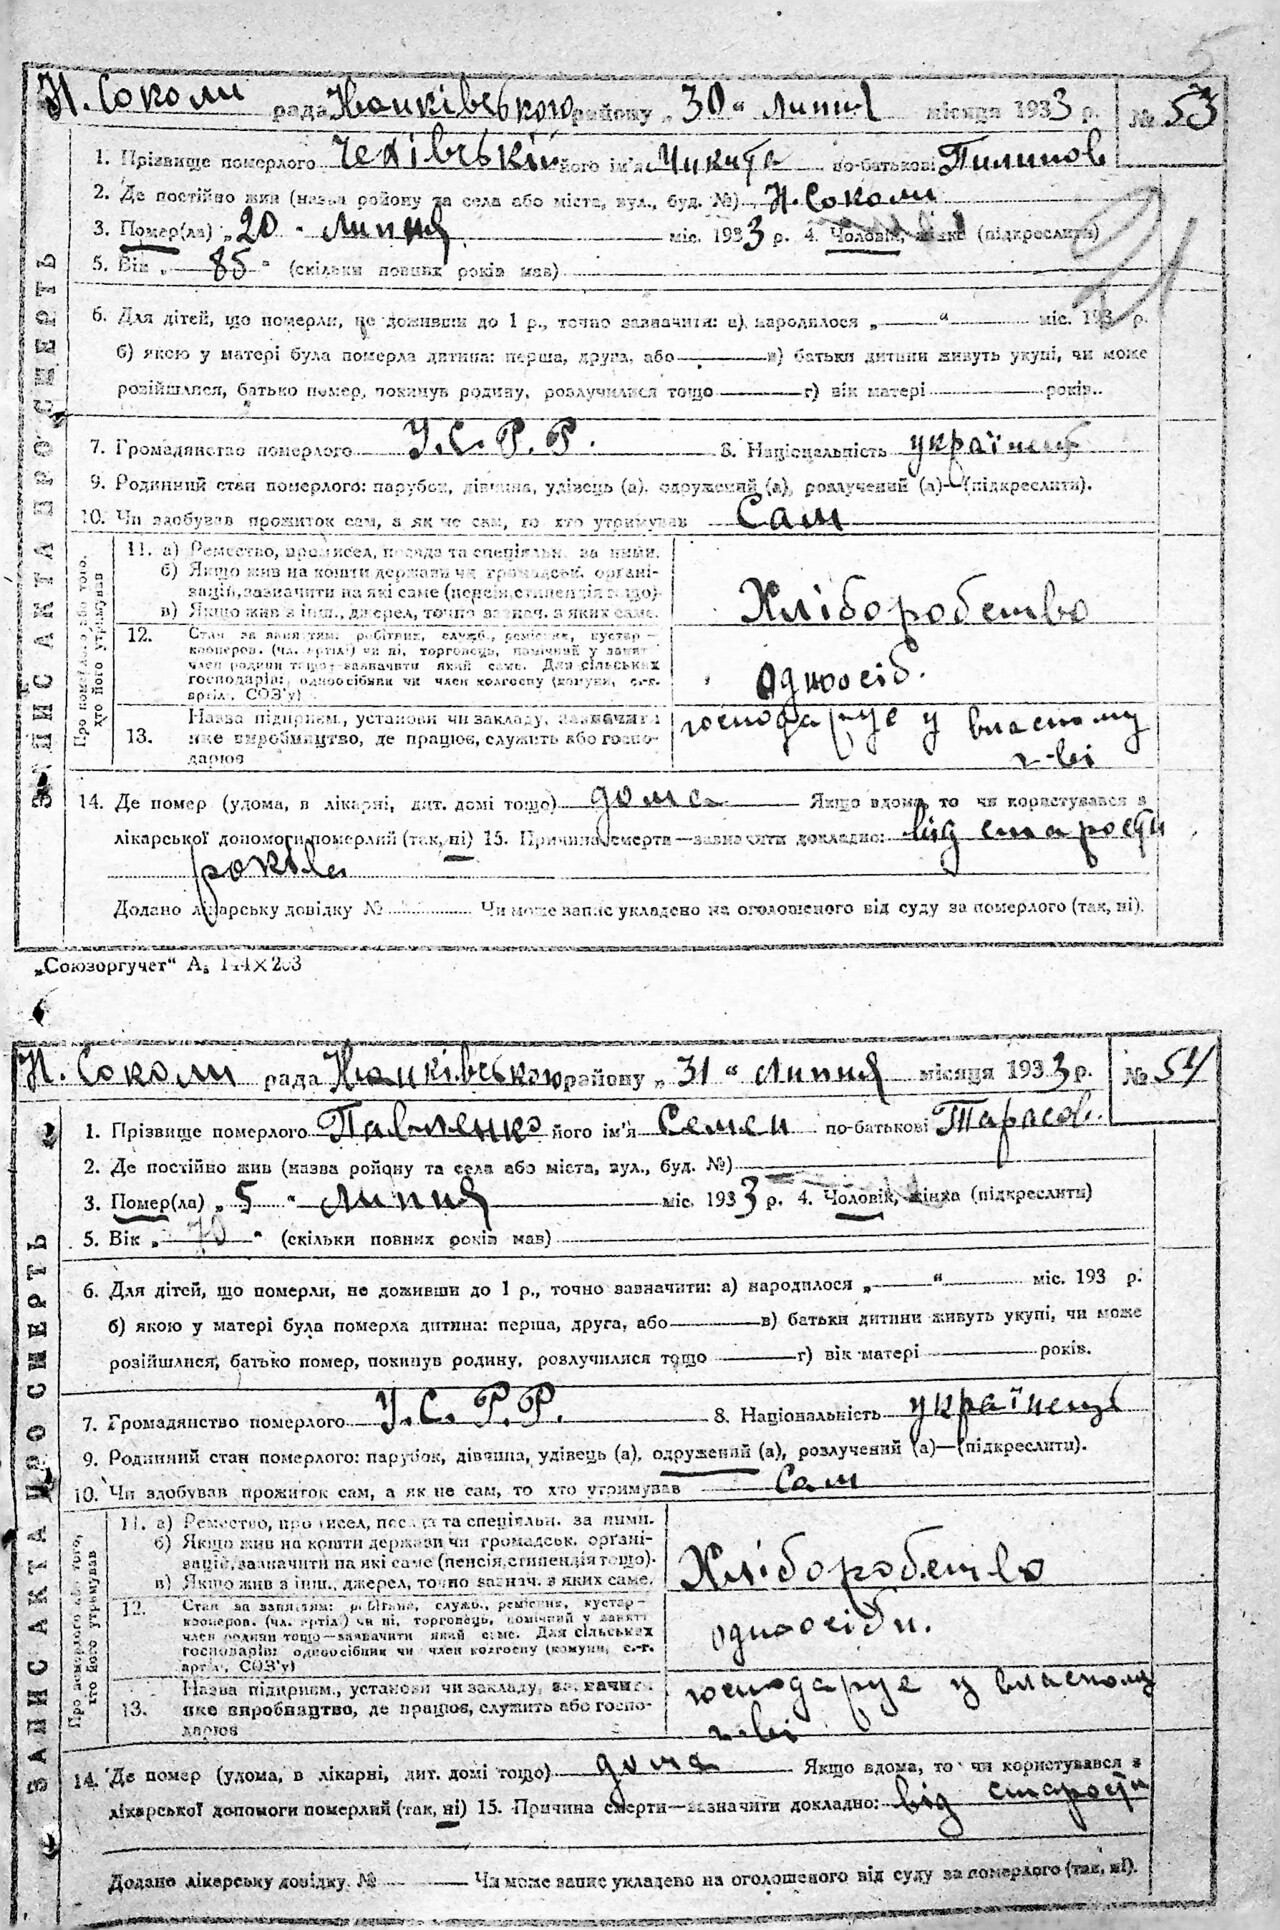 5
Н. Соколи рада Іванківського району „ 30 “ Липня місяця 1933 р. № 53
1. Прізвище померлого Чехівський його ім'я Микита по-батькові Пилипов
2. Де постійно жив (назва району та села або міста, вул., буд. №) Н. Соколи
3. Помер(ла) „ 20 “ Липня міс. 1933 р. 4. Чоловік, жінка (підкреслити)
21
5. Вік „ 85 “ (скільки повних років мав)
6. Для дітей, що померли, не доживши до 1 р., точно зазначити: а) народилося „ “ міс. 193 р.
б) якою у матері була померла дитина: перша, друга, або в) батьки дитини живуть укупі, чи може
розійшлися, батько помер, покинув родину, розлучилися тощо г) вік матері років..
7. Громадянство померлого У.С.Р.Р. 8. Національність українець
9. Родинний стан померлого: парубок, дівчина, удівець (а), одружений (а), розлучений (а)—(підкреслити).
10. Чи здобував прожиток сам, а як не сам, то хто утримував Сам
ЗАПИС АКТА ПРО СМЕРТЬ
Про померлого або того, хто його утримував
11. а) Ремество, промисел, посада та спеціяльн. за ними.
б) Якщо жив на кошти держави чи громадськ. органі-
зацій, зазначити на які саме (пенсія, стипендія тощо).
в) Якщо жив з інш., джерел, точно зазнач. з яких саме.
Хліборобство
12. Стан за заняттям: робітник, служб., ремісник, кустар—
кооперов. (чл. артілі) чи ні, торговець, помічний у занятт
член родини тощо—зазначити який саме. Для сільських
господарів: одноосібник чи член колгоспу (комуни, с.-г.
артіл., СОЗ'у)
одноосіб.
13. Назва підприєм., установи чи закладу, зазначити
яке виробництво, де працює, служить або госпо-
дарює
господарує у власному
г-ві
14. Де помер (удома, в лікарні, дит. домі тощо) дома Якщо вдома, то чи користувався з
лікарської допомоги померлий (так, ні) 15. Причина смерти—зазначити докладно: від старости
років
Додано лікарську довідку № Чи може запис укладено на оголошеного від суду за померлого (так, ні).
„Союзоргучет“ А₅ 144×203
Н. Соколи рада Іванківського району „ 31 “ Липня місяця 1933 р. № 54
1. Прізвище померлого Павленко його ім'я Семен по-батькові Тарасов.
2. Де постійно жив (назва ройону та села або міста, вул., буд. №)
3. Помер(ла) „ 5 “ Липня міс. 1933 р. 4. Чоловік, жінка (підкреслити)
5. Вік „ 70 “ (скільки повних років мав)
6. Для дітей, що померли, не доживши до 1 р., точно зазначити: а) народилося „ “ міс. 193 р.
б) якою у матері була померла дитина: перша, друга, або в) батьки дитини живуть укупі, чи може
розійшлися, батько помер, покинув родину, розлучилися тощо г) вік матері років.
7. Громадянство померлого У.С.Р.Р. 8. Національність українець
9. Родинний стан померлого: парубок, дівчина, удівець (а), одружений (а), розлучений (а)—(підкреслити).
10. Чи здобував прожиток сам, а як не сам, то хто утримував Сам
ЗАПИС АКТА ПРО СМЕРТЬ
Про померлого або того, хто його утримував
11. а) Ремество, промисел, посада та спеціяльн. за ними.
б) Якщо жив на кошти держави чи громадськ. органі-
зацій, зазначити на які саме (пенсія, стипендія тощо).
в) Якщо жив з інш., джерел, точно зазнач. з яких саме.
Хліборобство
12. Стан за заняттям: робітник, служб., ремісник, кустар—
кооперов. (чл. артілі) чи ні, торговець, помічний у занятті
член родини тощо—зазначити який саме. Для сільських
господарів: одноосібник чи член колгоспу (комуни, с.-г.
артіл., СОЗ'у)
одноосібн.
13. Назва підприєм., установи чи закладу, зазначити
яке виробництво, де працює, служить або госпо-
дарює
господарує у власному
г-ві
14. Де помер (удома, в лікарні, дит. домі тощо) дома Якщо вдома, то чи користувався з
лікарської допомоги померлий (так, ні) 15. Причина смерти—зазначити докладно: від старости
Додано лікарську довідку № Чи може запис укладено на оголошеного від суду за померлого (так, ні).